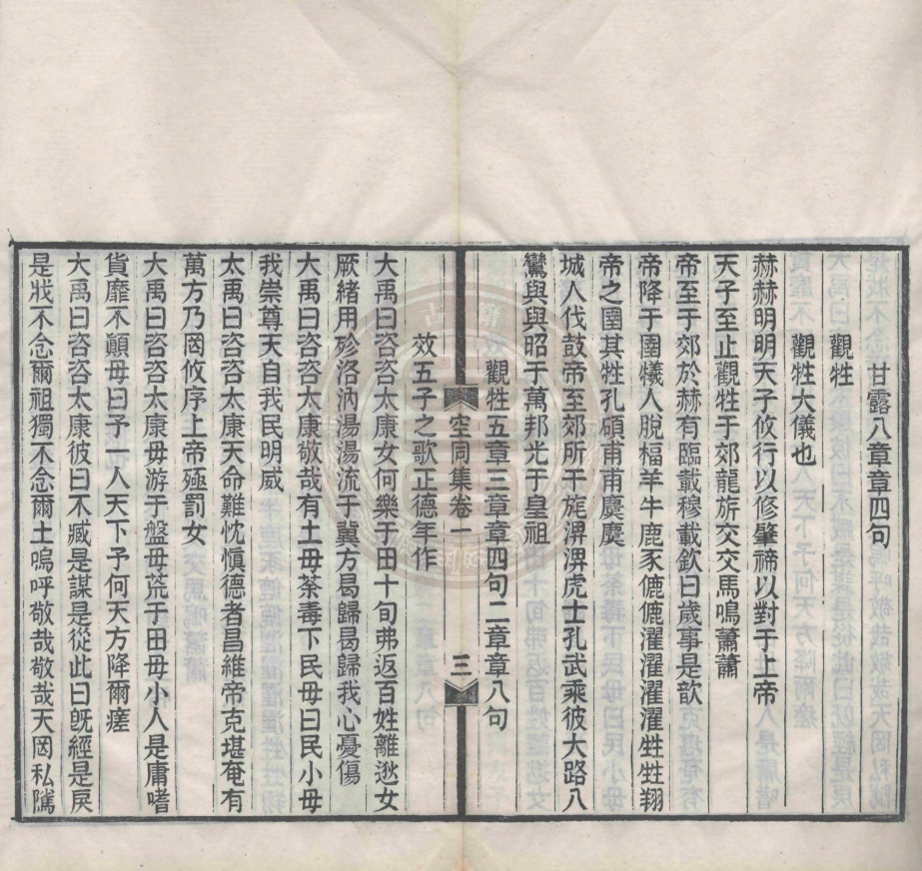 甘露八章章四句
觀牲
觀牲大儀也
赫赫明明天子攸行以修肇禘以對于上帝
天子至止觀牲于郊龍旂交交馬鳴蕭蕭
帝至于郊於赫有臨載穆載欽曰歲事是歆
帝降于圉犧人脫楅羊牛鹿豕儦儦濯濯濯濯牲牲翔
帝之圉其牲孔碩甫甫麌麌
城人伐鼓帝至郊所干旄淠淠虎士孔武乘彼大路八
鸞與與昭于萬邦光于皇祖
觀牲五章三章章四句二章章八句
空同集卷一
三
效五子之歌正德年作
大禹曰咨咨太康女何樂于田十旬弗返百姓離逖女
厥緒用殄洛汭湯湯流于冀方曷歸曷歸我心憂傷
大禹曰咨咨太康敬哉有土毋荼毒下民毋曰民小毋
我崇尊天自我民明威
太禹曰咨咨太康天命難忱愼德者昌維帝克堪奄有
萬方乃罔攸序上帝殛罰女
大禹曰咨咨太康毋游于盤毋荒于田毋小人是庸嗜
貨靡不顛毋曰予一人天下予何天方降爾瘥
大禹曰咨咨太康彼曰不臧是謀是從此曰旣經是戾
是戕不念爾祖獨不念爾土嗚呼敬哉敬哉天罔私隲